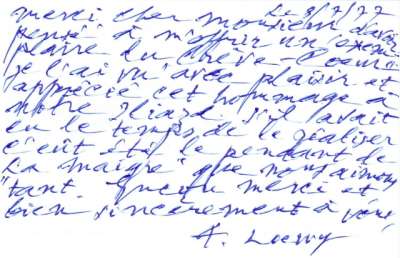 Le 8/7/77
merci cher monsieur d'avoir
pensé à m'offrir un exem-
plaire du Crève-Coeur
je l'ai vu avec plaisir et
apprécié cet hommage à
notre Iliazd. S'il avait
eu le temps de le réaliser
c'eût été le pendant de
"La Maigre" que nous aimons
tant. Encore merci et
bien sincèrement à vous,